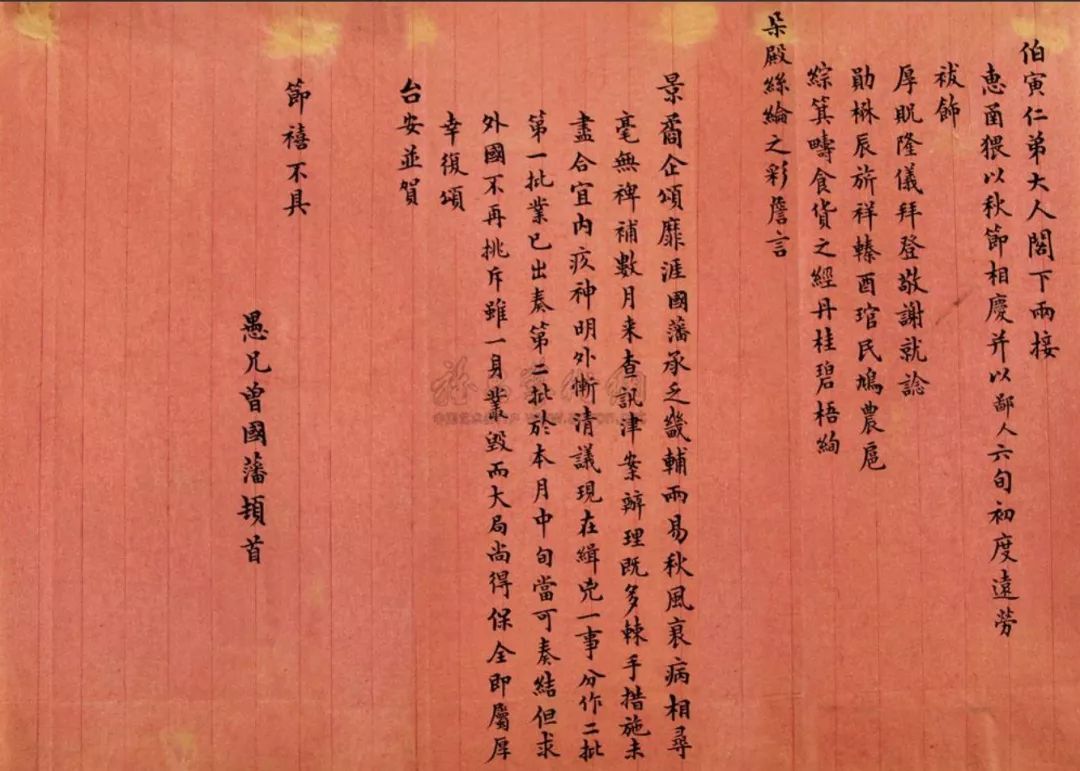 伯寅仁弟大人閣下兩接
惠函猥以秋節相慶并以鄙人六旬初度遠勞
祓飾
厚貺隆儀拜登敬謝就諗
勛楙辰旂祥臻酉琯民鳩農扈
綜箕疇食貨之經丹桂碧梧絢
朵殿絲綸之彩詹言
景霱企頌靡涯國藩承乏畿輔兩易秋風衰病相尋
毫無裨補數月来查訊津案辦理既多棘手措施未
盡合宜内疚神明外慚清議現在緝兇一事分作二批
第一批業已出奏第二批於本月中旬當可奏結但求
外國不再挑斥雖一身叢毀而大局尚得保全即屬厚
幸復頌
台安並賀
節禧不具
愚兄曾國藩頓首